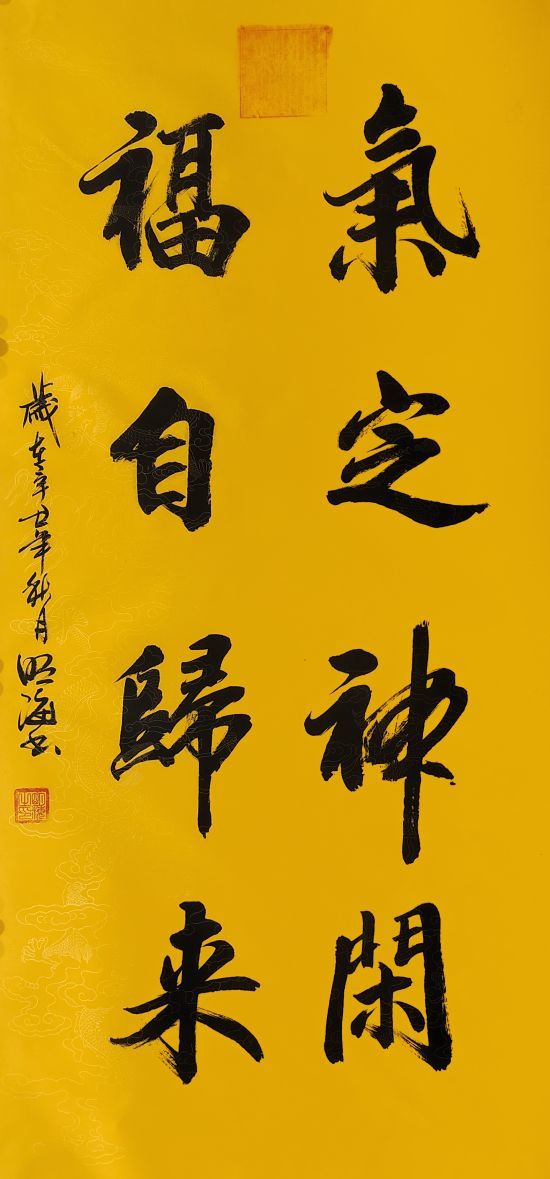 氣定神閑
福自歸来
歲在辛丑年秋月明海书